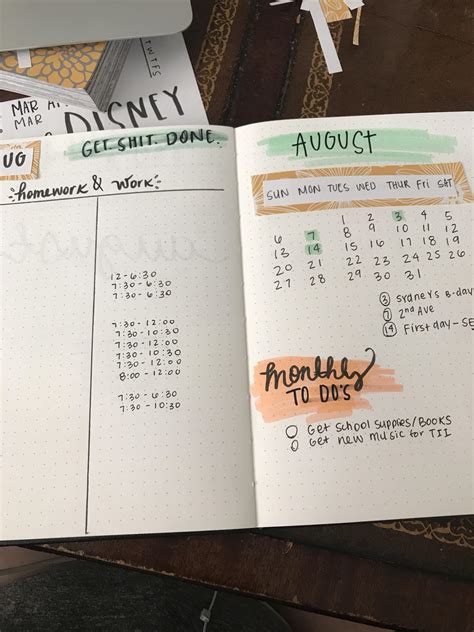 TWTFS
MAR
MAR
DISNEY
UG
GET. SHIT. DONE.
homework & WORK
12 - 6:30
7:30 - 6:30
7:30 - 6:30
7:30 - 12:00
7:30 - 10:30
7:30 - 12:00
7:30 - 12:00
8:00 - 12:00
7:30 - 6:30
7:30 - 10:30
AUGUST
SUN MON TUES WED THUR Fri SAT
1 2 3 4 5
6 7 8 9 10 11 12
13 14 15 16 17 18 19
20 21 22 23 24 25 26
27 28 29 30 31
3 Sydney's B-day
7 2nd Ave
14 First day - SE
monthly
TO DO'S
Get school supplies/BOOKS
Get new music for TII